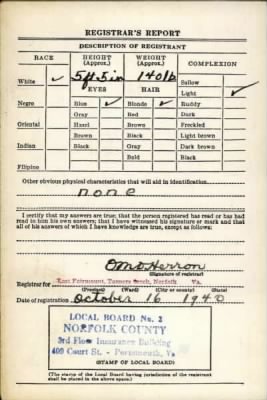 REGISTRAR'S REPORT
DESCRIPTION OF REGISTRANT
RACE HEIGHT (Approx.) WEIGHT (Approx.) COMPLEXION
White ✓ 5 ft. 5 in 140 lb. Sallow
EYES HAIR Light ✓
Negro Blue ✓ Blonde ✓ Ruddy
Gray Red Dark
Oriental Hazel Brown Freckled
Brown Black Light brown
Indian Black Gray Dark brown
Bald Black
Filipino
Other obvious physical characteristics that will aid in identification
none
I certify that my answers are true; that the person registered has read or has had
read to him his own answers; that I have witnessed his signature or mark and that
all of his answers of which I have knowledge are true, except as follows:
Herron
(Signature of registrar)
Registrar for East Fairmount, Tanners Creek, Norfolk Va.
(Precinct) (Ward) (City or county) (State)
Date of registration October 16 1940
LOCAL BOARD No. 2
NORFOLK COUNTY
3rd Floor Insurance Building
409 Court St. - Portsmouth, Va.
(STAMP OF LOCAL BOARD)
(The stamp of the Local Board having jurisdiction of the registrant
shall be placed in the above space.)